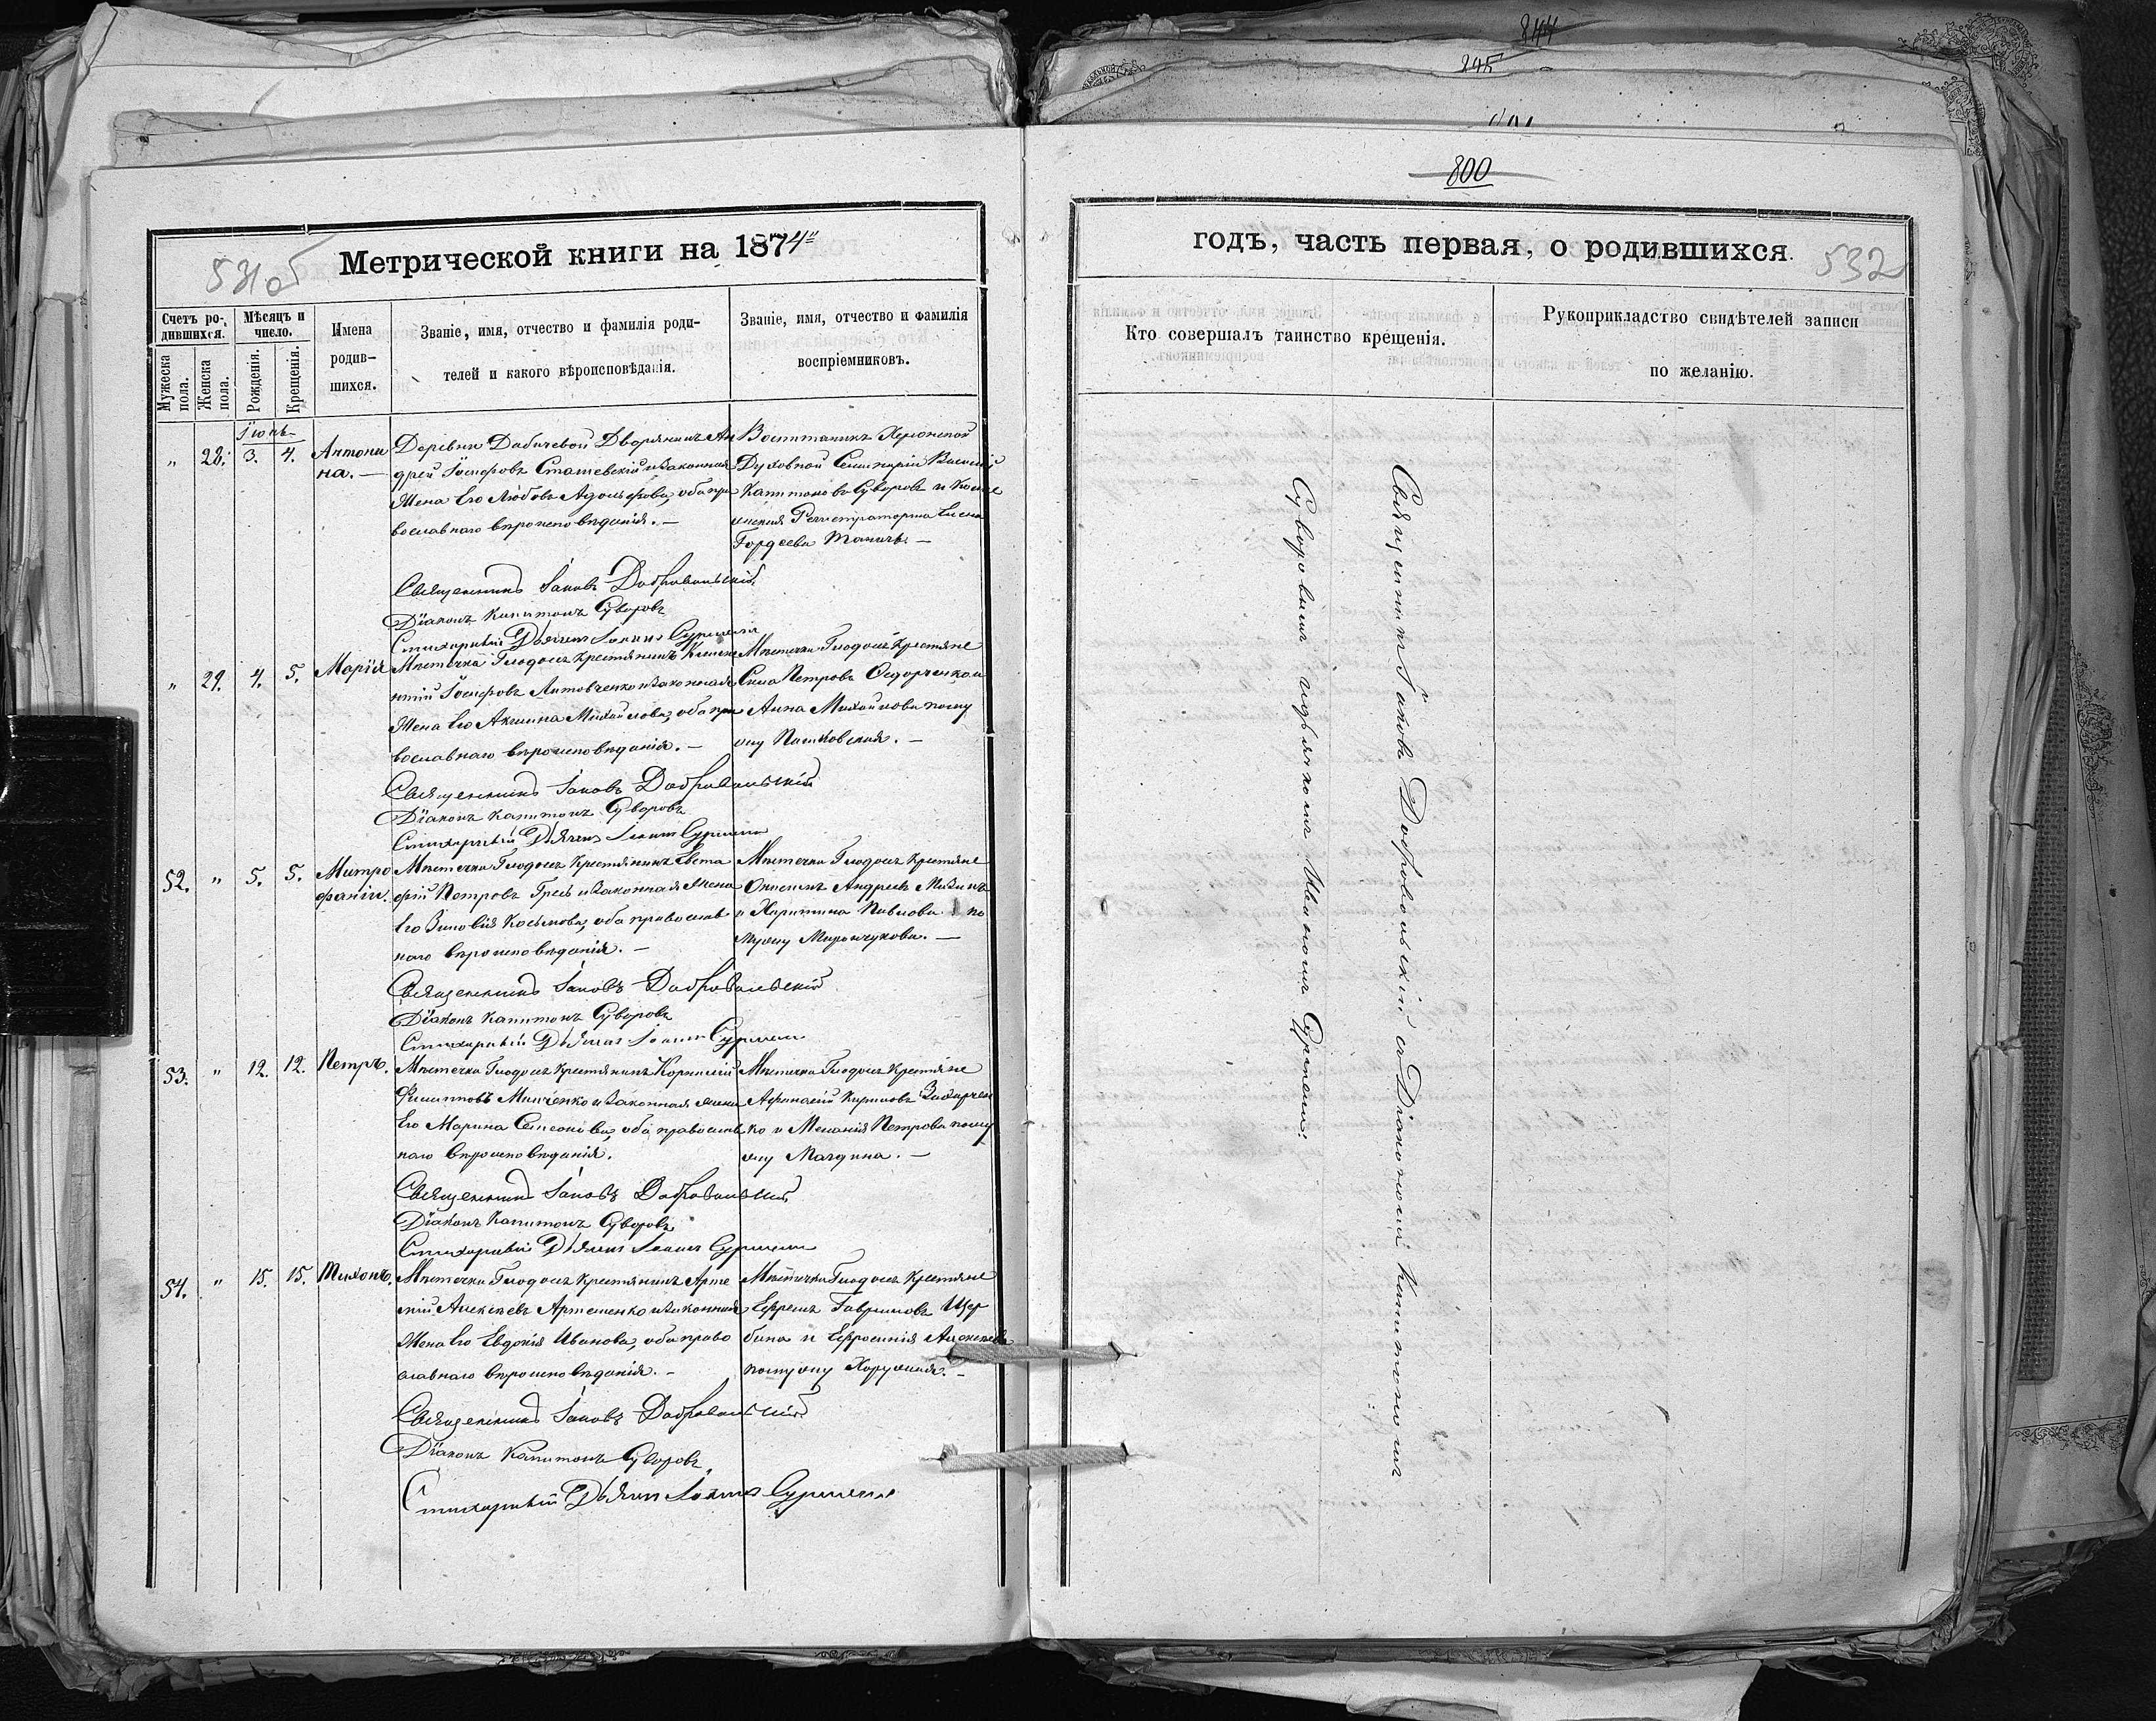 844
245
800
531об
Метрической книги на 1874
Счетъ ро-
дившихся.
Мѣсяцъ и
число.
Мужеска
пола.
Женска
пола.
Рожденія.
Крещенія.
Имена
родив-
шихся.
Званіе, имя, отчество и фамилія роди-
телей и какого вѣроисповѣданія.
Званіе, имя, отчество и фамилія
воспріемниковъ.
Іюнь
" 28. 3. 4.
Антони
на. —
Деревни Дабичевой Дворянинъ Ан
дрей Іосифовъ Сташевскій и законная
жена его Любовь Адольфова, оба пра
вославнаго вѣроисповѣданія. —
Воспитанникъ Херсонской
Духовной Семинаріи Василій
Капитоновъ Суворовъ и Колле
жская Регистраторша Елена
Гордеева —
Священникъ Іаковъ Добровольскій
Діаконъ Капитонъ Суворовъ
Стихарный Дьячекъ Іоаннъ
" 29. 4. 5.
Марія
Мѣстечка Глодосъ Крестьянинъ
Іосифовъ Литовченко и законная
жена его Акилина Михайлова, оба пра
вославнаго вѣроисповѣданія. —
Мѣстечка Глодосъ Крестьяне
Сила Петровъ Федорченко и
Анна Михайлова по му
жу Пашковская. —
Священникъ Іаковъ Добровольскій
Діаконъ Капитонъ Суворовъ
Стихарный Дьячекъ Іоаннъ
52. " 5. 5.
Митро
фанъ.
Мѣстечка Глодосъ Крестьянинъ Евста
фій Петровъ Гресь и законная жена
его Зиновія Косьмова, оба православ
наго вѣроисповѣданія. —
Мѣстечка Глодосъ Крестьяне
Андреевъ
и Харитина Павлова по
мужу Мирончукова. —
Священникъ Іаковъ Добровольскій
Діаконъ Капитонъ Суворовъ
Стихарный Дьячекъ Іоаннъ
53. " 12. 12.
Петръ.
Мѣстечка Глодосъ Крестьянинъ Корнилій
Филипповъ Минченко и законная жена
его Марина Семеонова, оба православ
наго вѣроисповѣданія.
Мѣстечка Глодосъ Крестьяне
Афанасій Кириловъ Захарчен
ко и Меланія Петрова по му
жу —
Священникъ Іаковъ Добровольскій
Діаконъ Капитонъ Суворовъ
Стихарный Дьячекъ Іоаннъ
54. " 15. 15.
Тихонъ.
Мѣстечка Глодосъ Крестьянинъ Арте
мій Алексѣевъ Артеменко и законная
жена его Евдокія Иванова, оба право
славнаго вѣроисповѣданія. —
Мѣстечка Глодосъ Крестьяне
Ефремъ Гавриловъ Щер
бина и Ефросинія Алексѣева
по мужу —
Священникъ Іаковъ Добровольскій
Діаконъ Капитонъ Суворовъ
Стихарный Дьячекъ Іоаннъ
годъ, часть первая, о родившихся.
532
Кто совершалъ таинство крещенія.
Рукоприкладство свидѣтелей записи
по желанію.
Священникъ Іаковъ Добровольскій съ Діакономъ Капитономъ
Суворовымъ и дьячкомъ Иваномъ